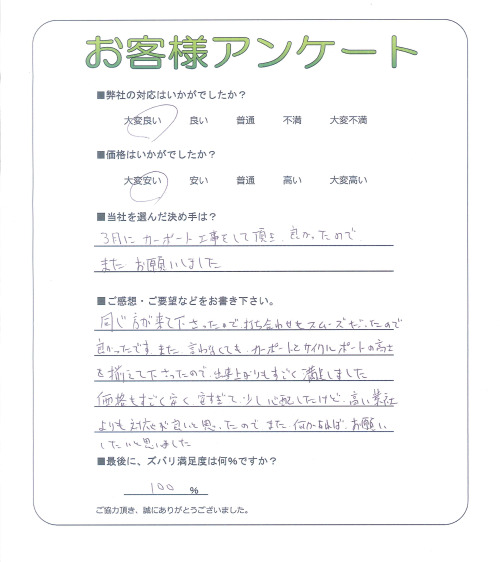 お客様アンケート
■弊社の対応はいかがでしたか？
大変良い 良い 普通 不満 大変不満
■価格はいかがでしたか？
大変安い 安い 普通 高い 大変高い
■当社を選んだ決め手は？
3月に カーポート工事をして頂き、良かったので
また お願いしました
■ご感想・ご要望などをお書き下さい。
同じ方が来て下さったので、打ち合わせもスムーズだったので
良かったです。また、言わなくても、カーポートとサイクルポートの高さ
を揃えて下さったので、出来上がりもすごく満足しました
価格もすごく安く 安すぎて、少し心配したけど、高い業社
よりも対応が良いと思ったので また 何かあれば、お願い
したいと思いました
■最後に、ズバリ満足度は何％ですか？
100 ％
ご協力頂き、誠にありがとうございました。